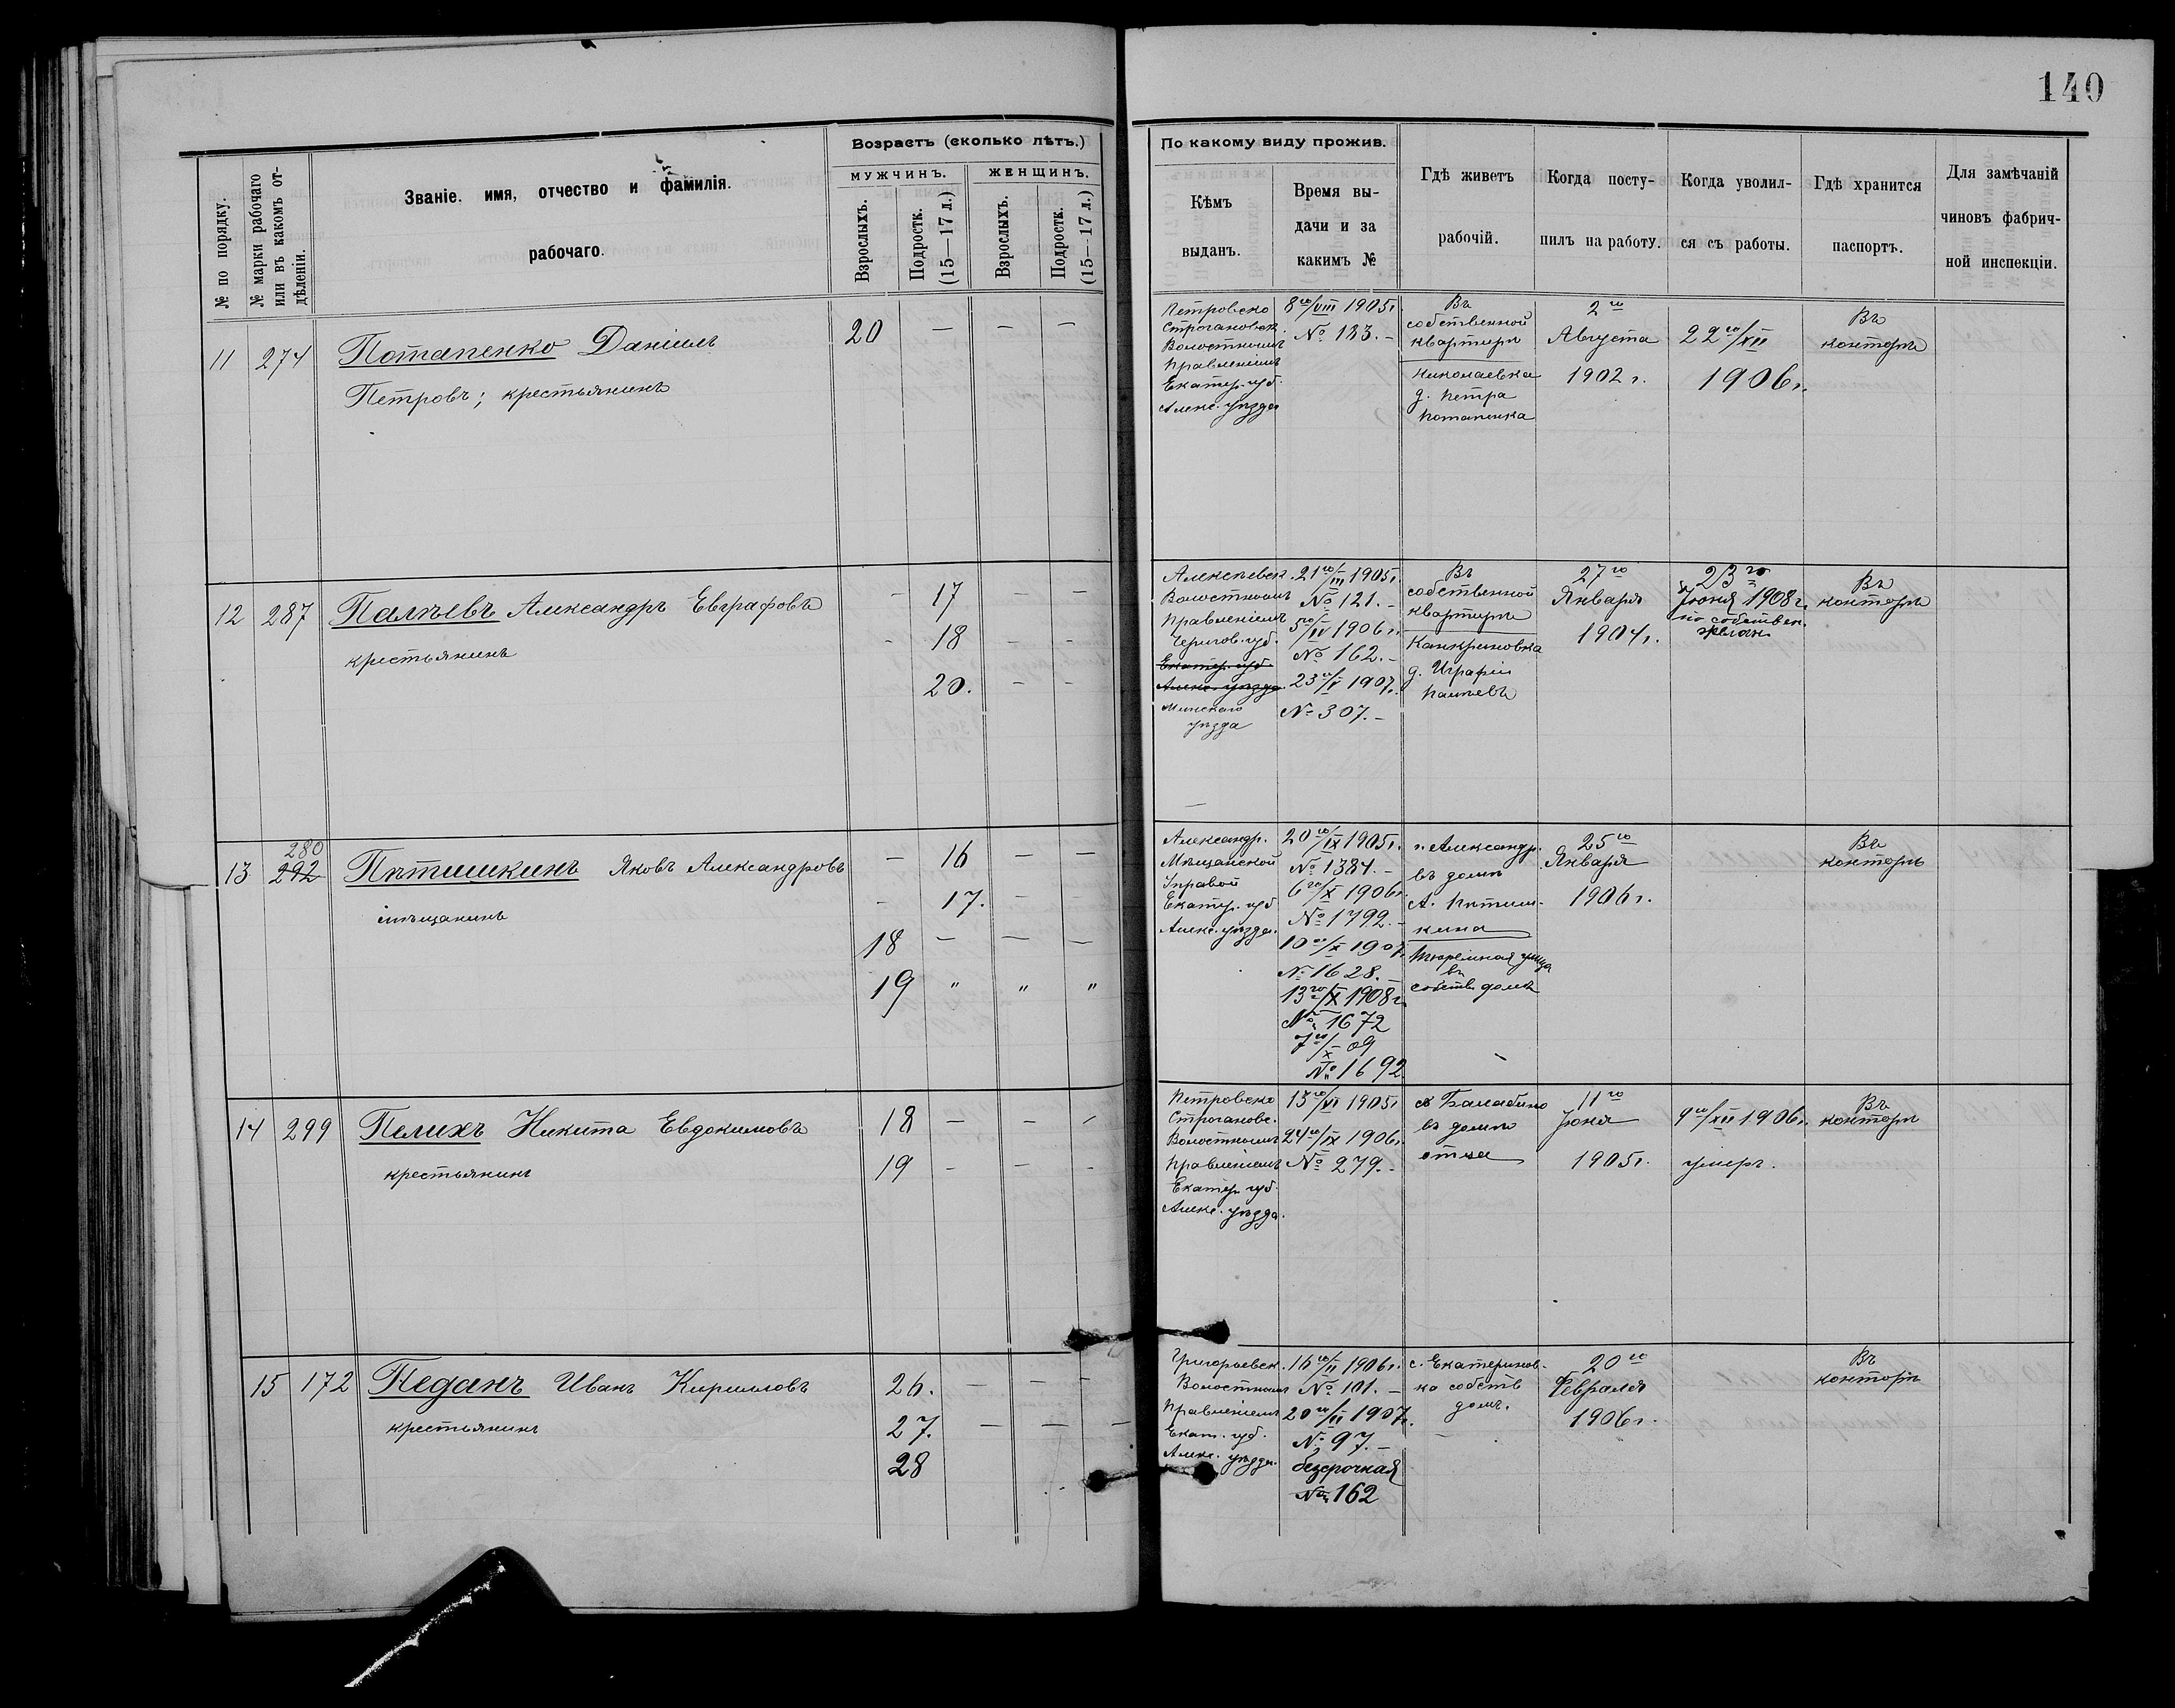 140
№ по порядку.
№ марки рабочаго
или въ какомъ от-
дѣленіи.
Званіе. имя, отчество и фамилія.
рабочаго.
Возрастъ (сколько лѣтъ.)
МУЖЧИНЪ.
ЖЕНЩИНЪ.
Взрослыхъ.
Подростк.
(15—17 л.)
Взрослыхъ.
Подростк.
(15—17 л.)
По какому виду прожив.
Кѣмъ
выданъ.
Время вы-
дачи и за
какимъ №
Гдѣ живетъ
рабочій.
Когда посту-
пилъ на работу.
Когда уволил-
ся съ работы.
Гдѣ хранится
паспортъ.
Для замѣчаній
чиновъ фабрич-
ной инспекціи.
11 274 Потапенко Даніилъ
Петровъ; крестьянинъ
20 — — —
Петровско
Строгановск.
Волостнымъ
Правленіемъ
Екатер. губ.
Алекс. уѣзда
8го/VIII 1905г.
№ 183. –
Въ
собственной
квартирѣ
Николаевка
д. Петра
Потапенка
2го
Августа
1902 г.
22го/XII
1906г.
Въ
конторѣ
12 287 Палѣевъ Александръ Евграфовъ
крестьянинъ
– 17 –
– 18 – –
20. – –
Алексѣевск.
Волостнымъ
Правленіемъ
Чернгов. губ.
Екатер. губ.
Алекс. уѣзда.
уѣзда
21го/III 1905г.
№ 121. –
5го/IV 1906 г.
№ 162. –
23го/V 1907г.
№ 307. –
Въ
собственной
квартирѣ
Канкриновка
д.
Палѣевъ
27го
Января
1904г.
23го
Іюня 1908г.
по собствен.
желан.
Въ
конторѣ
280
13 292 Пѣтишкинъ Яковъ Александровъ
мѣщанинъ
– 16 – –
- 17. - -
18 – – –
19 " " "
Александр.
Мѣщанской
Управой
Екатер. губ
Алекс. уѣзда.
20го/IX 1905г.
№ 1384. –
6го/X 1906г.
№ 1792. –
10го/X 1907г.
№ 1628. –
13го/X 1908г.
№ 1672
7го/X 09
№ 1692
г. Александр.
въ домѣ
А. Пѣтиш-
кина
Тюремная улица
въ
собств. домѣ
25го
Января
1906г.
Въ
конторѣ
14 299 Пелихъ Никита Евдокимовъ
крестьянинъ
18 – – –
19 – – –
Петровско
Строгановс.
Волостнымъ
Правленіемъ
Екатер. губ.
Алекс. уѣзда.
13го/VI 1905г
24го/IX 1906г.
№ 279. –
с. Балабино
въ домѣ
отца
11го
Іюня
1905г.
9го/XII 1906г.
умеръ.
Въ
конторѣ
15 172 Педанъ Иванъ Кирилловъ
крестьянинъ
26. – – –
27. – – –
28
Григорьевск.
Волостнымъ
Правленіемъ
Екат. губ.
Алекс. уѣзда.
16го/II 1906г.
№ 101. –
20го/II 1907г.
№ 97. –
безсрочная
№ 162
с. Екатеринов-
ка собств
домъ.
20го
Февраля
1906г.
Въ
конторѣ